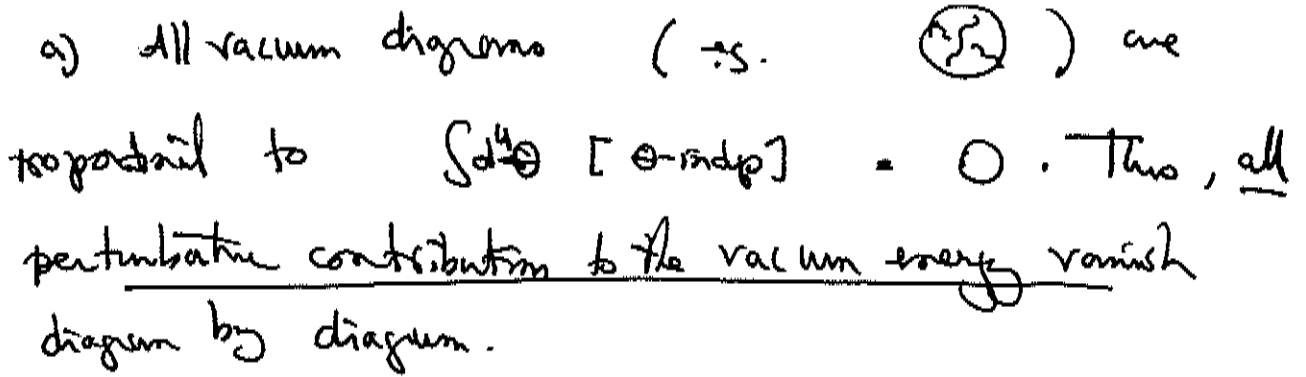 a) All vacuum diagrams ( eg. ) are
proportional to ∫d⁴θ [ θ-indep] = 0 . Thus, all
perturbative contribution to the vacuum energy vanish
diagram by diagram.